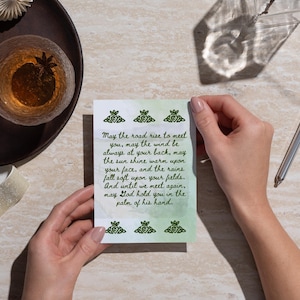 May the road rise to meet
you, may the wind be
always at your back, may
the sun shine warm upon
your face, and the rains
fall soft upon your fields.
And until we meet again,
may God hold you in the
palm of his hand.